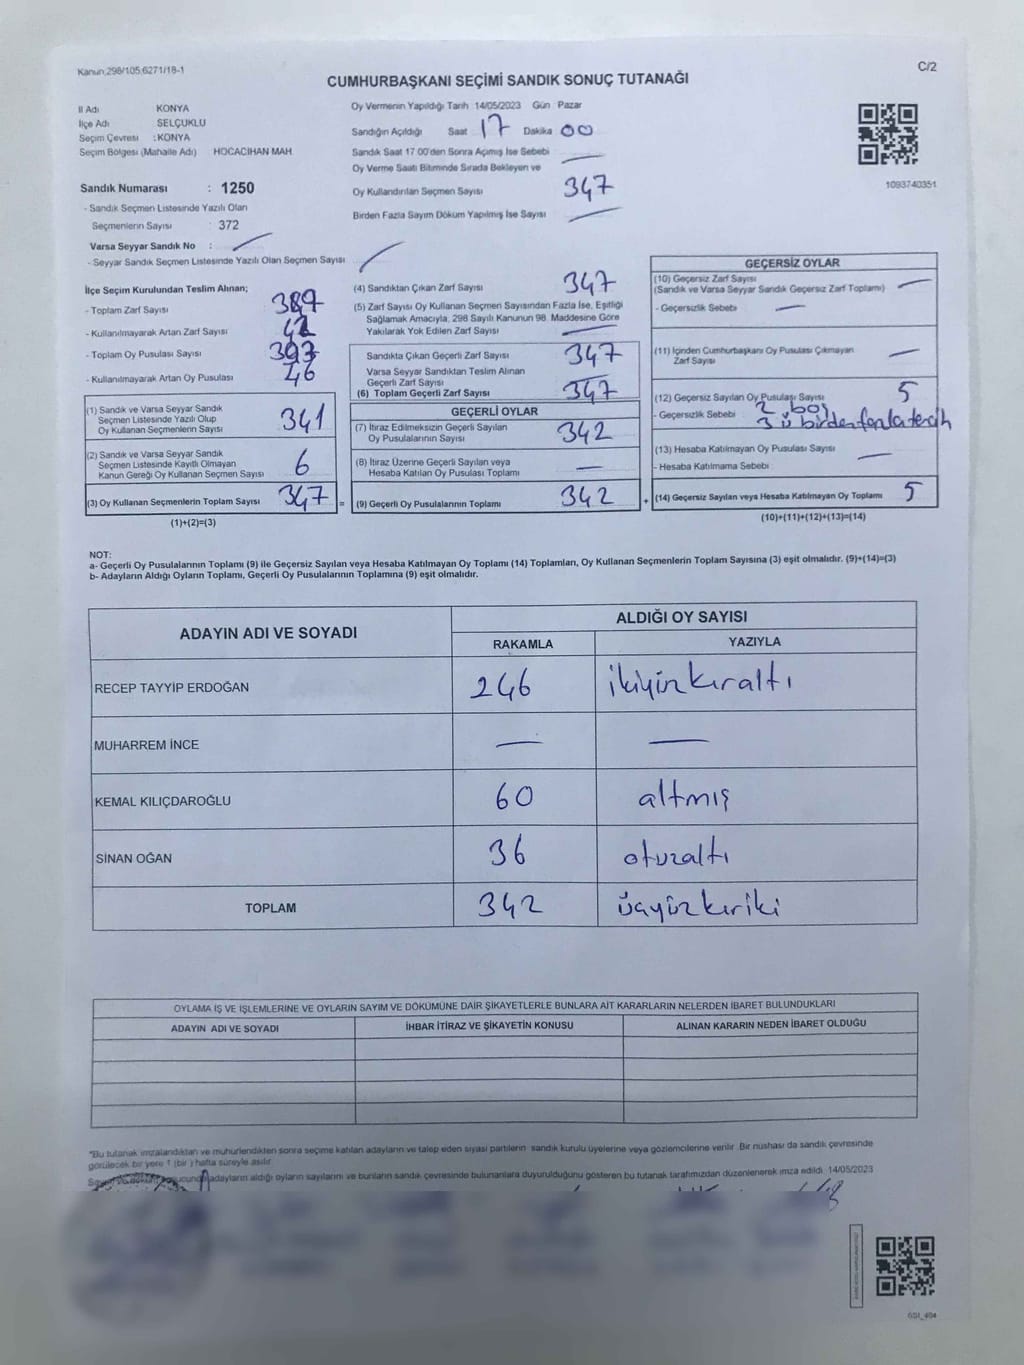 Kanun:298/105,6271/18-1
C/2
CUMHURBAŞKANI SEÇİMİ SANDIK SONUÇ TUTANAĞI
İl Adı KONYA
İlçe Adı SELÇUKLU
Seçim Çevresi :KONYA
Seçim Bölgesi (Mahalle Adı) HOCACİHAN MAH.
Sandık Numarası : 1250
- Sandık Seçmen Listesinde Yazılı Olan
Seçmenlerin Sayısı : 372
Varsa Seyyar Sandık No :
- Seyyar Sandık Seçmen Listesinde Yazılı Olan Seçmen Sayısı
Oy Vermenin Yapıldığı Tarih :14/05/2023 Gün : Pazar
Sandığın Açıldığı Saat 17 Dakika 00
Sandık Saat 17:00'den Sonra Açılmış İse Sebebi
Oy Verme Saati Bitiminde Sırada Bekleyen ve
Oy Kullandırılan Seçmen Sayısı 347
Birden Fazla Sayım Döküm Yapılmış İse Sayısı
1093740351
İlçe Seçim Kurulundan Teslim Alınan;
- Toplam Zarf Sayısı 389
- Kullanılmayarak Artan Zarf Sayısı 42
- Toplam Oy Pusulası Sayısı 393
- Kullanılmayarak Artan Oy Pusulası 46
(1) Sandık ve Varsa Seyyar Sandık
Seçmen Listesinde Yazılı Olup
Oy Kullanan Seçmenlerin Sayısı 341
(2) Sandık ve Varsa Seyyar Sandık
Seçmen Listesinde Kayıtlı Olmayan
Kanun Gereği Oy Kullanan Seçmen Sayısı 6
(3) Oy Kullanan Seçmenlerin Toplam Sayısı 347 =
(1)+(2)=(3)
(4) Sandıktan Çıkan Zarf Sayısı 347
(5) Zarf Sayısı Oy Kullanan Seçmen Sayısından Fazla İse, Eşitliği
Sağlamak Amacıyla, 298 Sayılı Kanunun 98. Maddesine Göre
Yakılarak Yok Edilen Zarf Sayısı
Sandıkta Çıkan Geçerli Zarf Sayısı 347
Varsa Seyyar Sandıktan Teslim Alınan
Geçerli Zarf Sayısı
(6) Toplam Geçerli Zarf Sayısı 347
GEÇERLİ OYLAR
(7) İtiraz Edilmeksizin Geçerli Sayılan
Oy Pusulalarının Sayısı 342
(8) İtiraz Üzerine Geçerli Sayılan veya
Hesaba Katılan Oy Pusulası Toplamı
(9) Geçerli Oy Pusulalarının Toplamı 342 +
GEÇERSİZ OYLAR
(10) Geçersiz Zarf Sayısı
(Sandık ve Varsa Seyyar Sandık Geçersiz Zarf Toplamı)
- Geçersizlik Sebebi
(11) İçinden Cumhurbaşkanı Oy Pusulası Çıkmayan
Zarf Sayısı
(12) Geçersiz Sayılan Oy Pusulası Sayısı 5
- Geçersizlik Sebebi 2 boş
3 ü birden fazla tercih
(13) Hesaba Katılmayan Oy Pusulası Sayısı
- Hesaba Katılmama Sebebi
(14) Geçersiz Sayılan veya Hesaba Katılmayan Oy Toplamı 5
(10)+(11)+(12)+(13)=(14)
NOT:
a- Geçerli Oy Pusulalarının Toplamı (9) ile Geçersiz Sayılan veya Hesaba Katılmayan Oy Toplamı (14) Toplamları, Oy Kullanan Seçmenlerin Toplam Sayısına (3) eşit olmalıdır. (9)+(14)=(3)
b- Adayların Aldığı Oyların Toplamı, Geçerli Oy Pusulalarının Toplamına (9) eşit olmalıdır.
ADAYIN ADI VE SOYADI
ALDIĞI OY SAYISI
RAKAMLA YAZIYLA
RECEP TAYYİP ERDOĞAN 246 ikiyüzkıraltı
MUHARREM İNCE
KEMAL KILIÇDAROĞLU 60 altmış
SİNAN OĞAN 36 otuzaltı
TOPLAM 342 üçyüzkıriki
OYLAMA İŞ VE İŞLEMLERİNE VE OYLARIN SAYIM VE DÖKÜMÜNE DAİR ŞİKAYETLERLE BUNLARA AİT KARARLARIN NELERDEN İBARET BULUNDUKLARI
ADAYIN ADI VE SOYADI İHBAR İTİRAZ VE ŞİKAYETİN KONUSU ALINAN KARARIN NEDEN İBARET OLDUĞU
*Bu tutanak imzalandıktan ve mühürlendikten sonra seçime katılan adayların ve talep eden siyasi partilerin sandık kurulu üyelerine veya gözlemcilerine verilir. Bir nüshası da sandık çevresinde
görülecek bir yere 1 (bir ) hafta süreyle asılır.
adayların aldığı oyların sayılarını ve bunların sandık çevresinde bulunanlara duyurulduğunu gösteren bu tutanak tarafımızdan düzenlenerek imza edildi. 14/05/2023